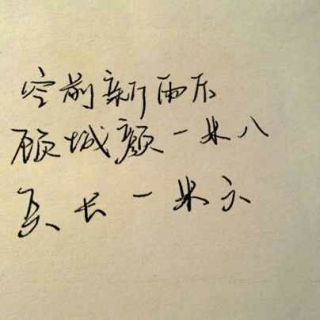 空前新雨
顾城颜一米八
兵长一米六